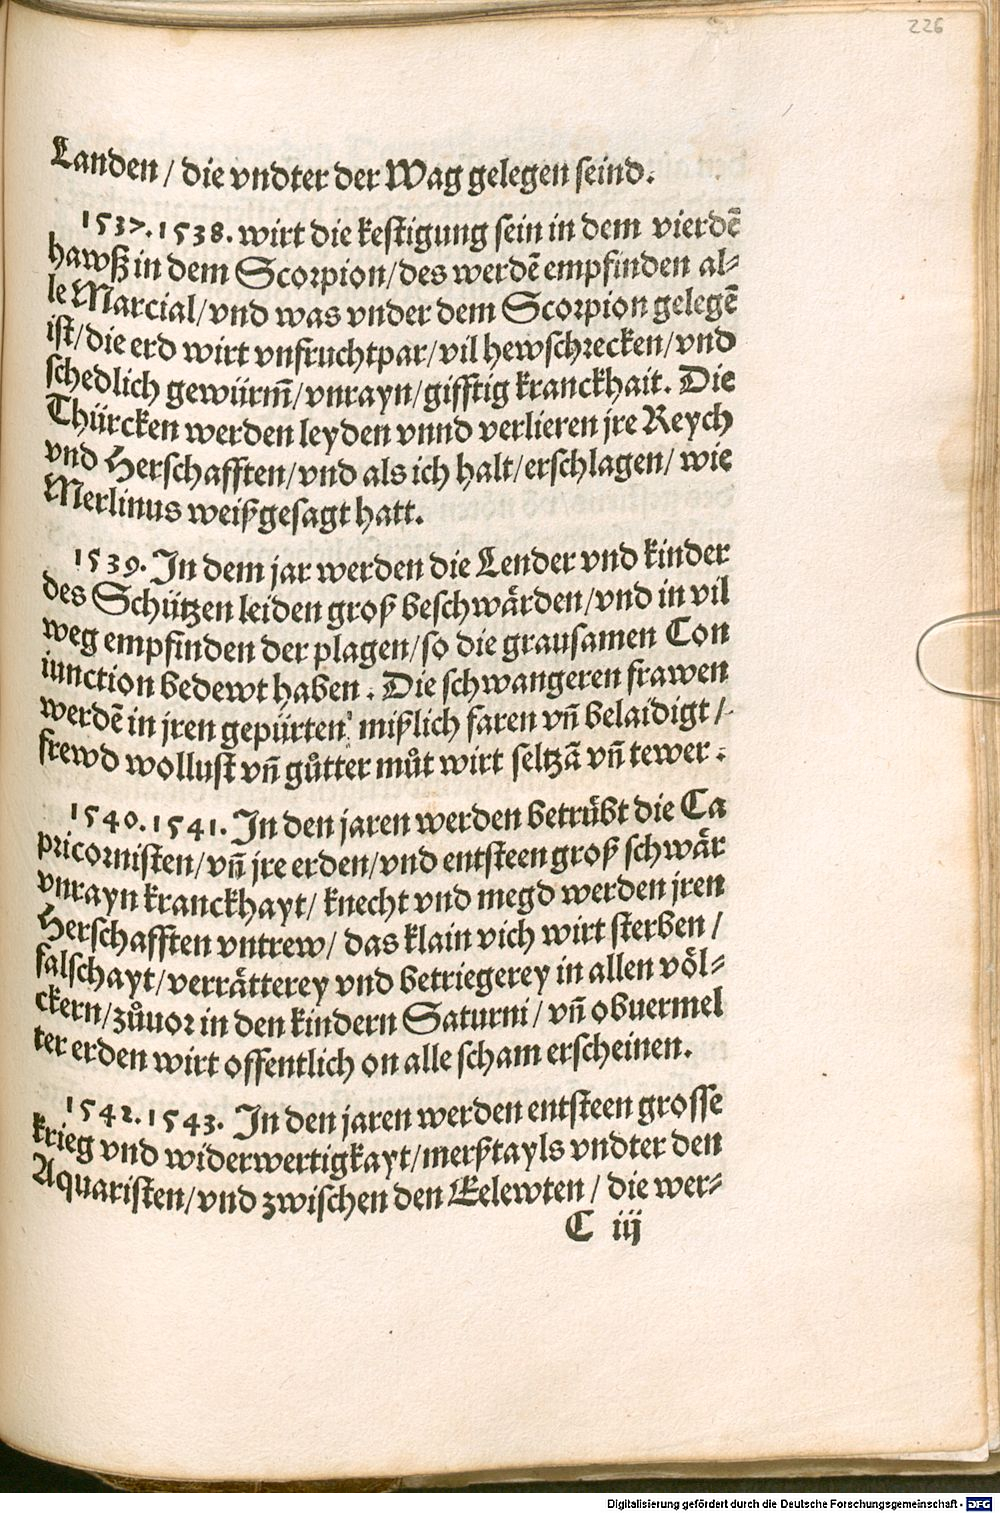 226
Landen / die vndter der Wag gelegen seind.
1537. 1538. wirt die kestigung sein in dem vierdē
hawß in dem Scorpion/des werdē empfinden al⸗
le Marcial/vnd was vnder dem Scorpion gelegē
ist/die erd wirt vnfruchtpar/vil hewschrecken/vnd
schedlich gewürm̃/vnrayn/gifftig kranckhait. Die
Thürcken werden leyden vnnd verlieren jre Reych
vnd Herschafften/vnd als ich halt/erschlagen/ wie
Merlinus weißgesagt hatt.
1539. In dem jar werden die Lender vnd kinder
des Schützen leiden groß beschwärden/vnd in vil
weg empfinden der plagen/so die grausamen Con
iunction bedewt haben. Die schwangeren frawen
werdē in jren gepürten mißlich faren vñ belaidigt /
frewd wollust vñ gůtter můt wirt seltzā vñ tewer.
1540. 1541. In den jaren werden betrübt die Ca
pricornisten/vñ jre erden/vnd entsteen groß schwär
vnrayn kranckhayt/ knecht vnd megd werden jren
Herschafften vntrew/ das klain vich wirt sterben /
falschayt/verrätterey vnd betriegerey in allen völ⸗
ckern/zůuor in den kindern Saturni / vñ obuermel
ter erden wirt offentlich on alle scham erscheinen.
1542. 1543. In den jaren werden entsteen grosse
krieg vnd widerwertigkayt/merßtayls vndter den
Aquaristen/vnd zwischen den Eelewten / die wer⸗
C iij
Digitalisierung gefördert durch die Deutsche Forschungsgemeinschaft - DFG